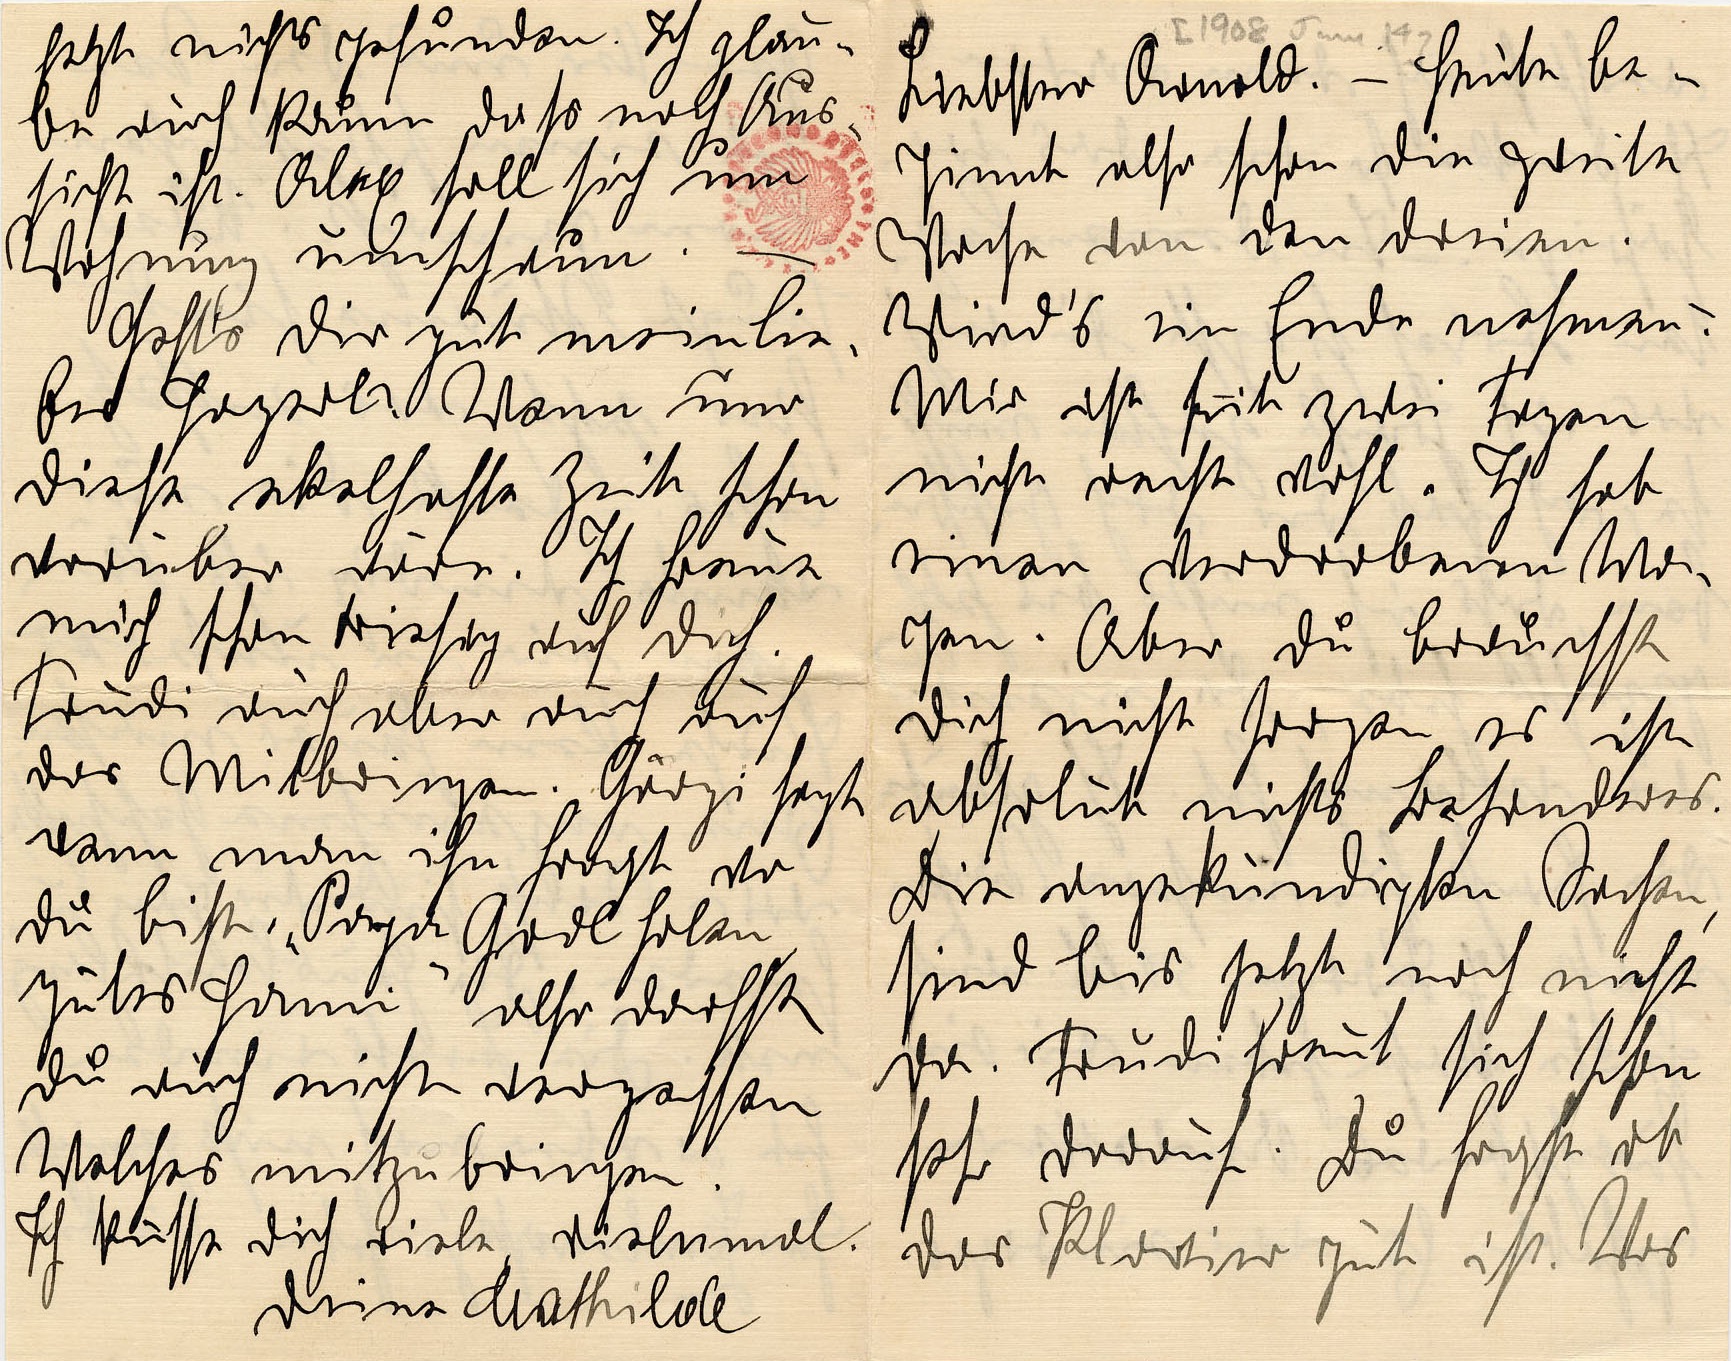 [1908 June 14?]
Liebster Arnold. – Heute be-
ginnt also schon die zweite
Woche von den dreien.
Wird's ein Ende nehmen?
Mir ist seit zwei Tagen
nicht recht wohl. Ich hab
einen verdorbenen Ma-
gen. Aber du brauchst
dich nicht sorgen es ist
absolut nichts Besonderes.
Die angekündigten Sachen,
sind bis jetzt noch nicht
da. Trudi freut sich schon
sehr darauf. Du fragst ob
das Klavier gut ist. Was
jetzt nichts gefunden. Ich glau-
be auch kaum dass noch Aus-
sicht ist. Alex soll sich um
Wohnung umschaun. —
Geht's dir gut mein lie-
ber Wenn nur
diese ekelhafte Zeit schon
vorüber wäre. Ich freue
mich schon riesig auf dich.
Trudi auch aber auch auf
das Mitbringen. Görgi sagt
wenn man ihn fragt wo
du bist: „Papa holen,
gutes Hami" also darfst
du auch nicht vergessen
Welches mitzubringen.
Ich küsse dich viele, vielemal.
Deine Mathilde